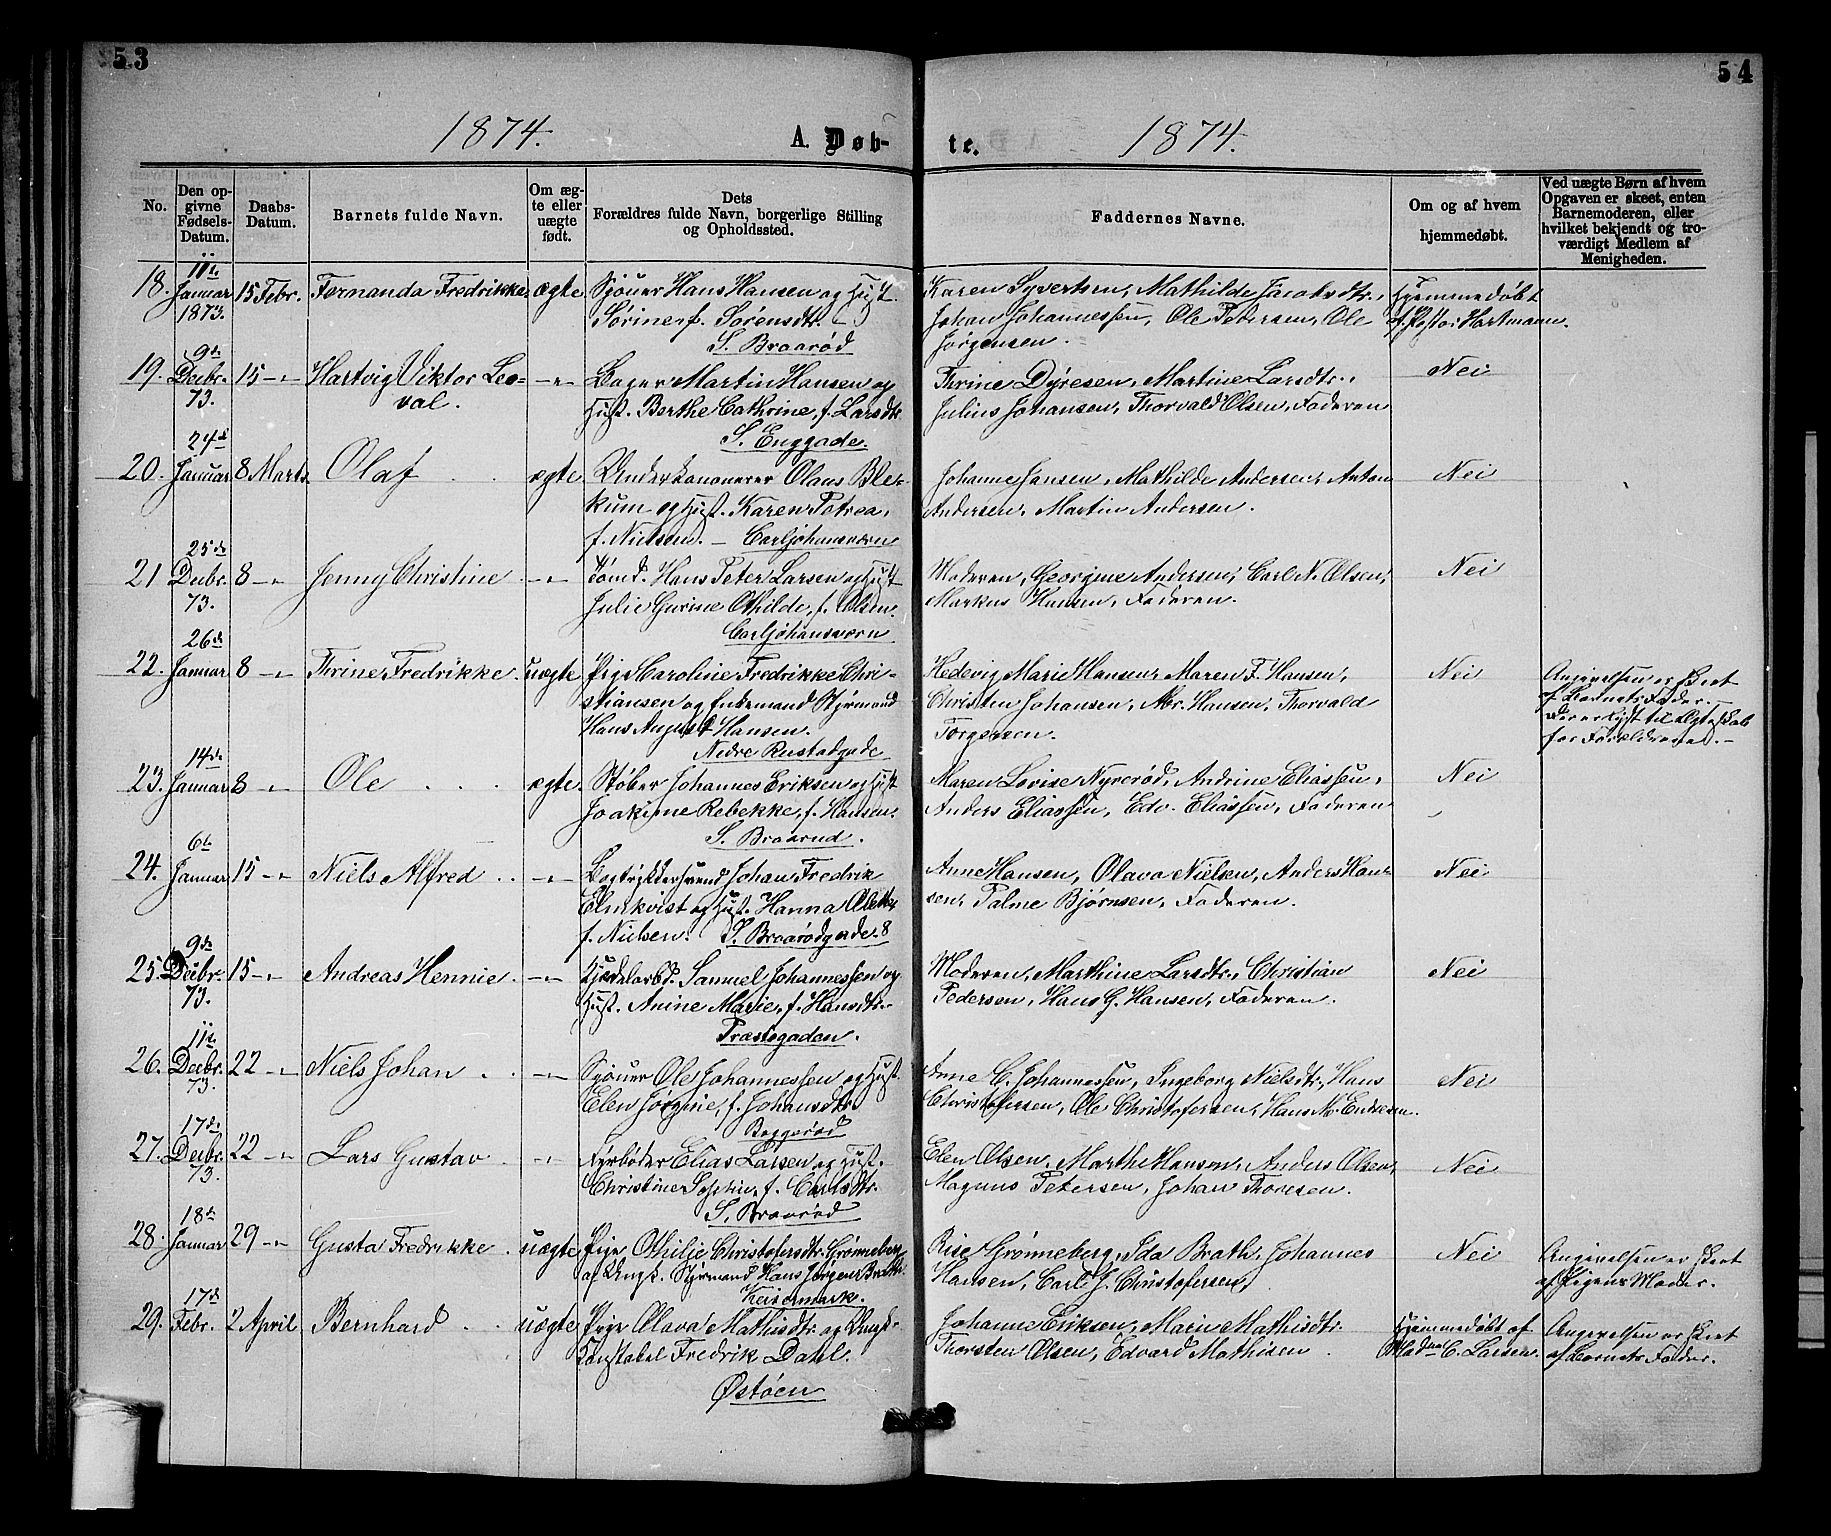 53
54
1874.
A. Døb-
te.
1874.
No.
Den op-
givne
Fødsels-
Datum.
Daabs-
Datum.
Barnets fulde Navn.
Om æg-
te eller
uægte
født.
Dets
Forældres fulde Navn, borgerlige Stilling
og Opholdssted.
Faddernes Navne.
Om og af hvem
hjemmedøbt.
Ved uægte Børn af hvem
Opgaven er skeet, enten
Barnemoderen, eller
hvilket bekjendt og tro-
værdigt Medlem af
Menigheden.
18. 11te Januar 1873. 15 Febr. Fernanda Fredrikke ægte
Sjouer Hans Hansen og Hust.
Sørine, f. Sørensdtr. -
S. Braarød
Karen Syvertsen, Mathilde Jacobsdtr.,
Johan Johannessen, Ole Petersen, Ole
Jørgensen.
Hjemmedøbt
af Pastor Hartmann.
19. 9de Decbr. 73. 15 -"- Hartvig Viktor Leo-
val. -"-
Bager Martin Hansen og
Hust. Berthe Cathrine, f. Larsdtr.
S. Enggade.
Thrine Dyresen, Martine Larsdtr.,
Julius Johansen, Thorvald Olsen, Faderen
Nei
20. 24de Januar 8 Marts Olaf ægte
Underkanonerer Olaus Ble-
kum og Hust. Karen Petrea,
f. Nielsen. - Carljohansværn
Johanne Jansen, Mathilde Andersen, Anton
Andersen, Martin Andersen.
Nei
21 25de Decbr. 73. 8 -"- Jenny Christine -"-
Tømd. Hans Peter Larsen og Hust
Julie Gurine Othilde, f. Olsen.
Carljohansværn
Moderen, Georgine Andersen, Carl N. Olsen,
Markus Hansen, Faderen.
Nei
22. 26de Januar 8 -"- Thrine Fredrikke uægte
Pige Caroline Fredrikke Chri-
stiansen og Enkemand Styrmand
Hans August Hansen.
Nedre Rustadgade
Hedevig Marie Hansen, Maren F. Hansen,
Christen Johansen, Abr. Hansen, Thorvald
Torgersen.
Nei
Angivelsen er skeet
af Barnets Fader.-
Der er lyst til Ægteskab
for Forældrene. -
23. 14de Januar 8 -"- Ole ægte.
Støber Johannes Eriksen og Hust
Joakime Rebekke, f. Hansen.
S. Braarud.
Maren Lovise Nyrerød, Andrine Eliassen,
Anders Eliassen, Edv. Eliassen, Faderen
Nei
24. 6te Januar 15 -"- Niels Alfred -"-
Bogtrykkersvend Johan Fredrik
Elmkvist og Hust. Hanna Olette,
f. Nielsen. S. Braarødgade 8
Anne Hansen, Olava Nielsen, Anders Han-
sen, Palme Bjørnsen, Faderen.
Nei
25. 9de Decbr. 73. 15 -"- Andreas Hennie -"-
Kjedelarbd. Samuel Johannessen og
Hust. Anine Marie, f. Hansdtr.
Præstegaden.
Moderen, Marthine Larsdtr., Christian
Pedersen, Hans G. Hansen, Faderen.
Nei
26. 11te Decbr. 73. 22 -"- Niels Johan -"-
Sjouer Ole Johannessen og Hust.
Elen Jørgine, f. Johansdtr.
Baggerød
Anne C. Johannessen, Ingeborg Nielsdtr., Hans
Christofersen, Ole Christofersen, Hans M. Endresen.
Nei
27. 17de Decbr. 73. 22 -"- Lars Gustav -"-
Fyrbøder Elias Larsen og Hust.
Christine Sophie, f. Carlsdtr.
S. Braarød
Elen Olsen, Marthe Hansen, Anders Olsen,
Magnus Petersen, Johan Thoresen.
Nei
28. 18de Januar 29 -"- Gusta Fredrikke uægte
Pige Othilie Christofersdtr. Grønneberg
af Ungk. Styrmand Hans Jørgen Brath.
Keisermark.
Rise Grønneberg, Ida Brath, Johannes
Hansen, Carl J. Christofersen,
Nei
Angivelsen er skeet
af Pigens Moder.
29. 17de Febr. 2 April Bernhard uægte
Pige Olava Mathisdtr. og Ungk.
Konstabel Fredrik Dahl.
Østøen
Johanne Eriksen, Marie Mathisdtr.
Thorsten Olsen, Edvard Mathisen
Hjemmedøbt af
Madme C. Larsen.
Angivelsen er skeet
af Barnets Fader.